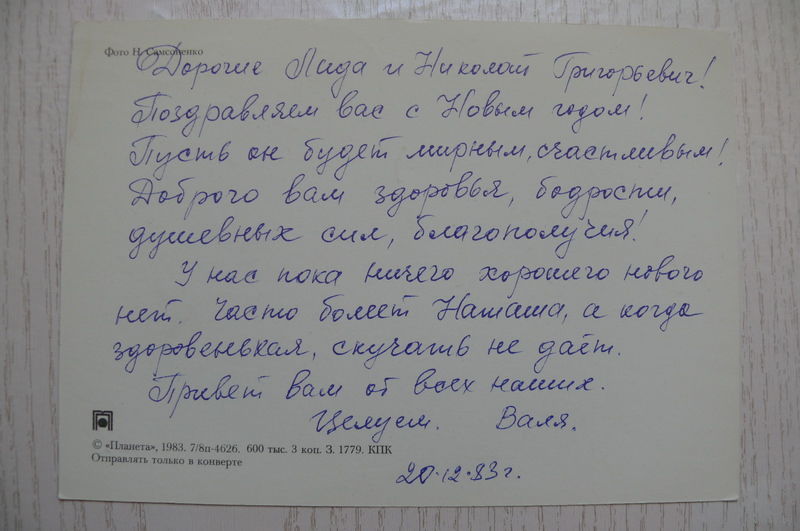 Фото Н. Самсоненко
Дорогие Лида и Николай Григорьевич!
Поздравляем вас с Новым годом!
Пусть он будет мирным, счастливым!
Доброго вам здоровья, бодрости,
душевных сил, благополучия!
У нас пока ничего хорошего нового
нет. Часто болеет Наташа, а когда
здоровенькая, скучать не даёт.
Привет вам от всех наших.
Целуем. Валя.
© «Планета», 1983. 7/8п-4626. 600 тыс. 3 коп. З. 1779. КПК
Отправлять только в конверте
20.12.83 г.